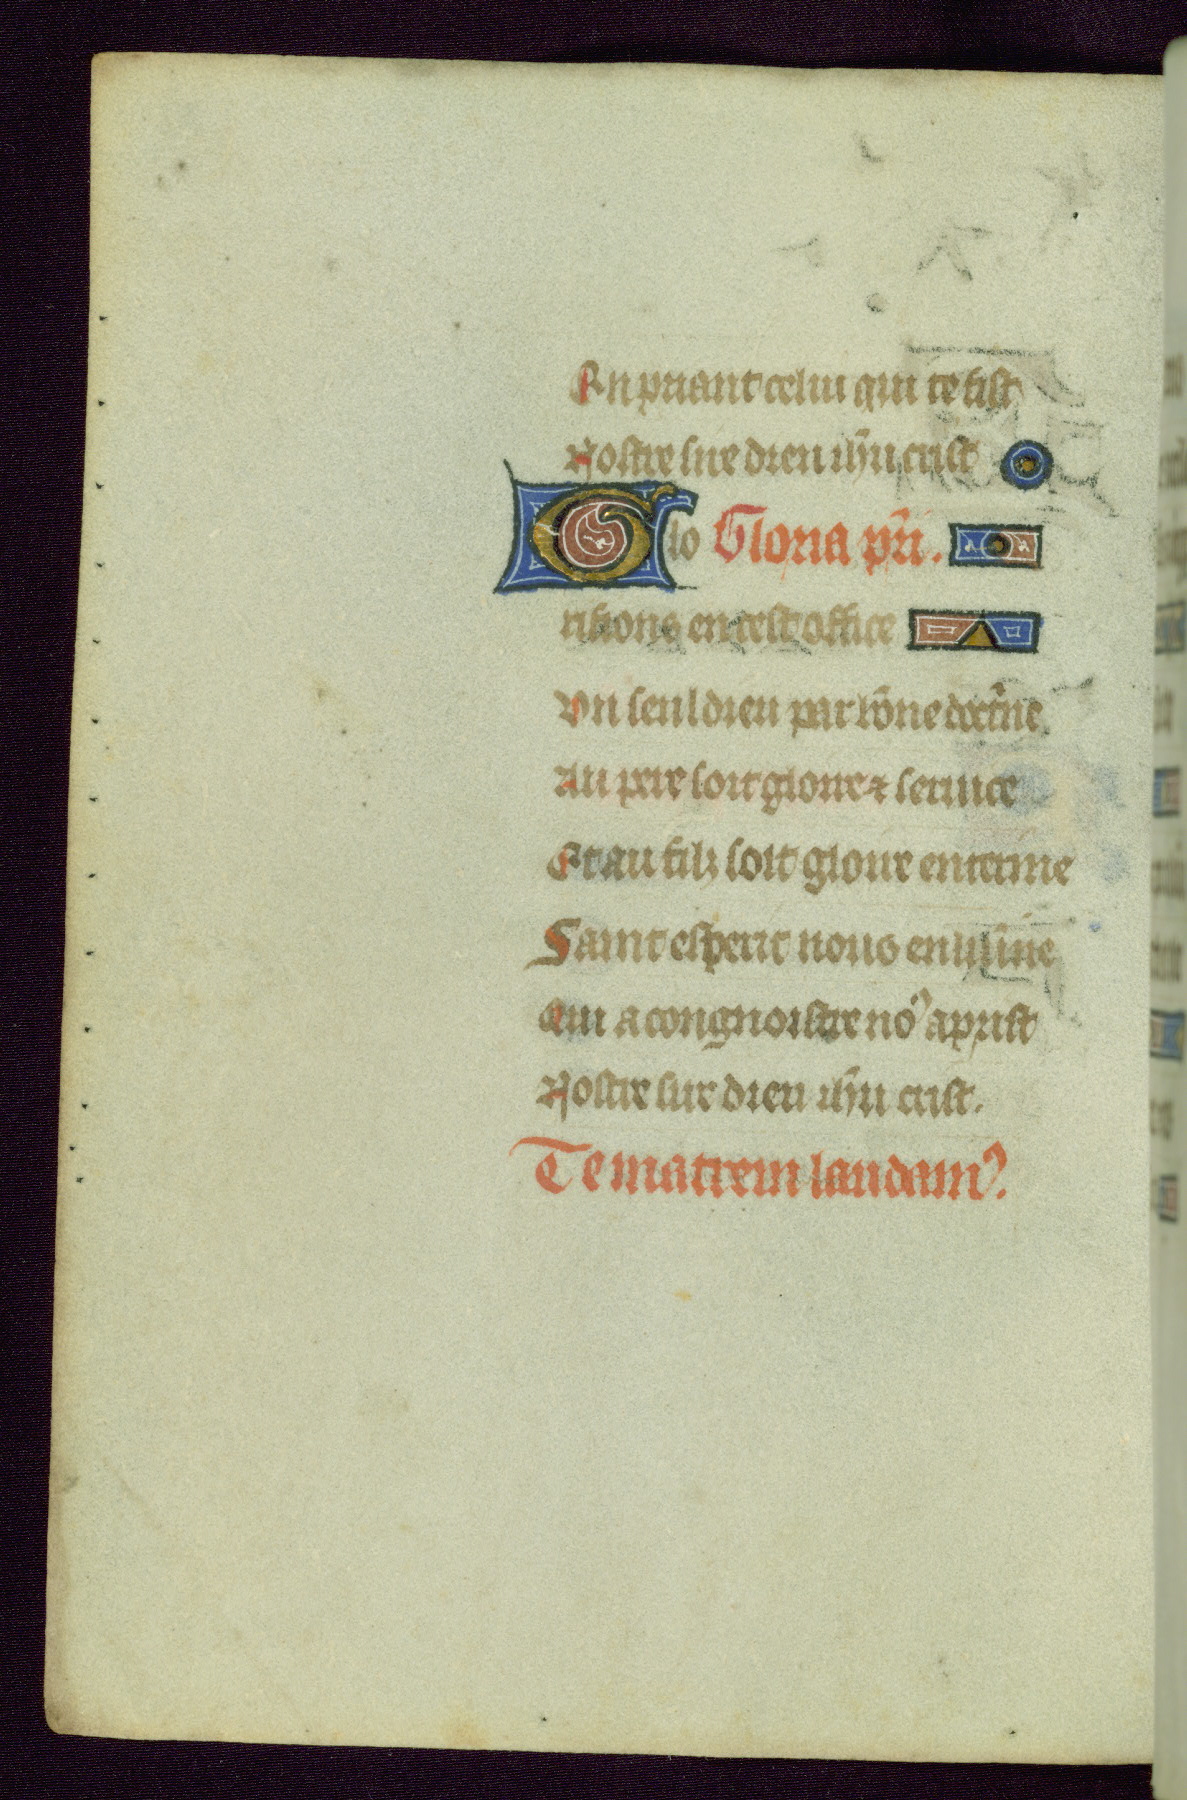 En priant celui qui te fist
Nostre sire dieu ih̄u crist
Glo Gloria pr̄i.
rifions en cest office
Un seul dieu par bōne doctͥne
Au pere soit gloire ⁊ seruice
Et au filz soit gloire enterine
Saint esperit nous enlumine
Qui a congnoistre noꝰ aprist
Nostre sire dieu ih̄u crist.
Te matrem laudamꝰ.